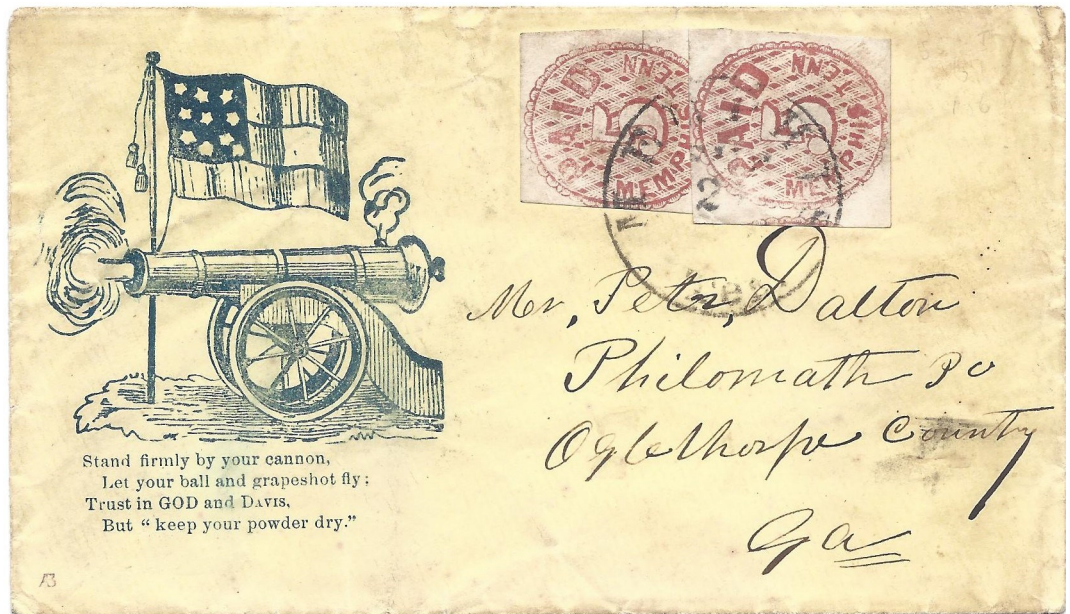 PAID
5
MEMPHIS TENN
PAID
5
MEMPHIS TENN
Mr, Peter, Dalton
Philomath Po
Oglethorpe County
Ga
Stand firmly by your cannon,
Let your ball and grapeshot fly;
Trust in GOD and DAVIS,
But "keep your powder dry."